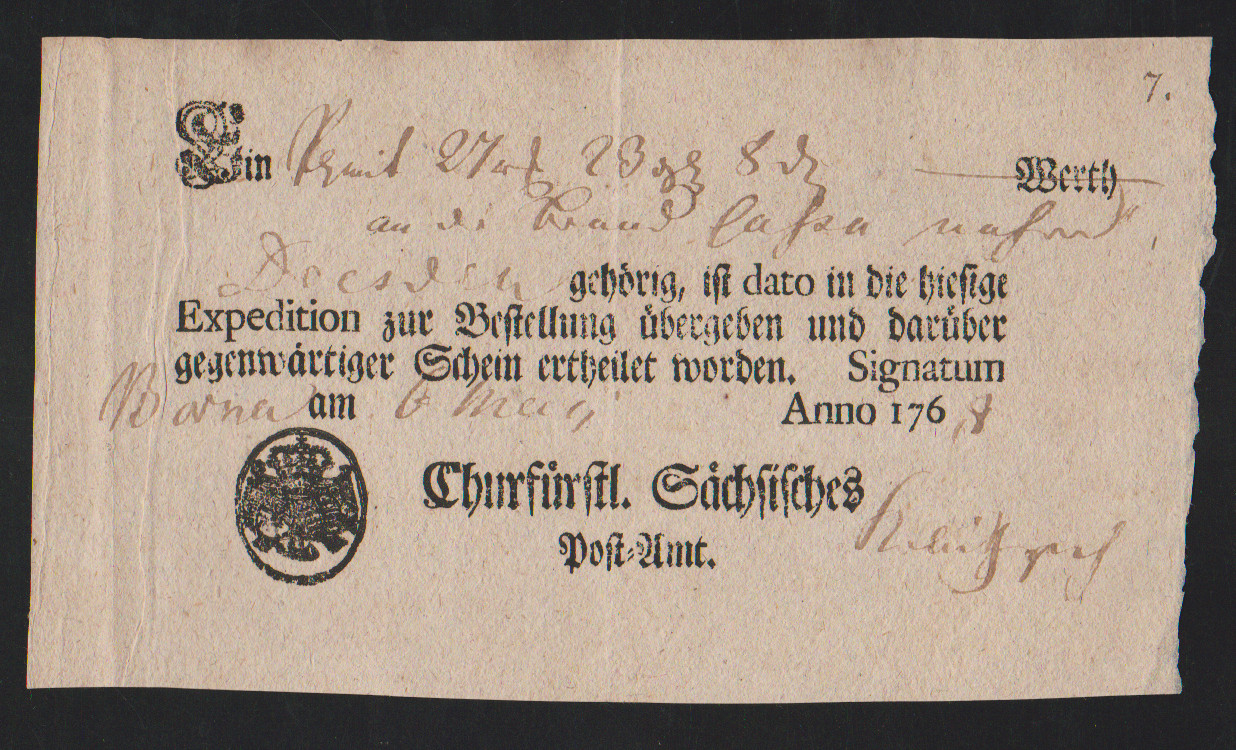 7.
Ein mit 27 23 8 Werth
an die Brand Cassa nacher
Dresden gehörig, ist dato in die hiesige
Expedition zur Bestellung übergeben und darüber
gegenwärtiger Schein ertheilet worden. Signatum
Borna am 6 May Anno 1768
Churfürstl. Sächsisches
Post-Amt.